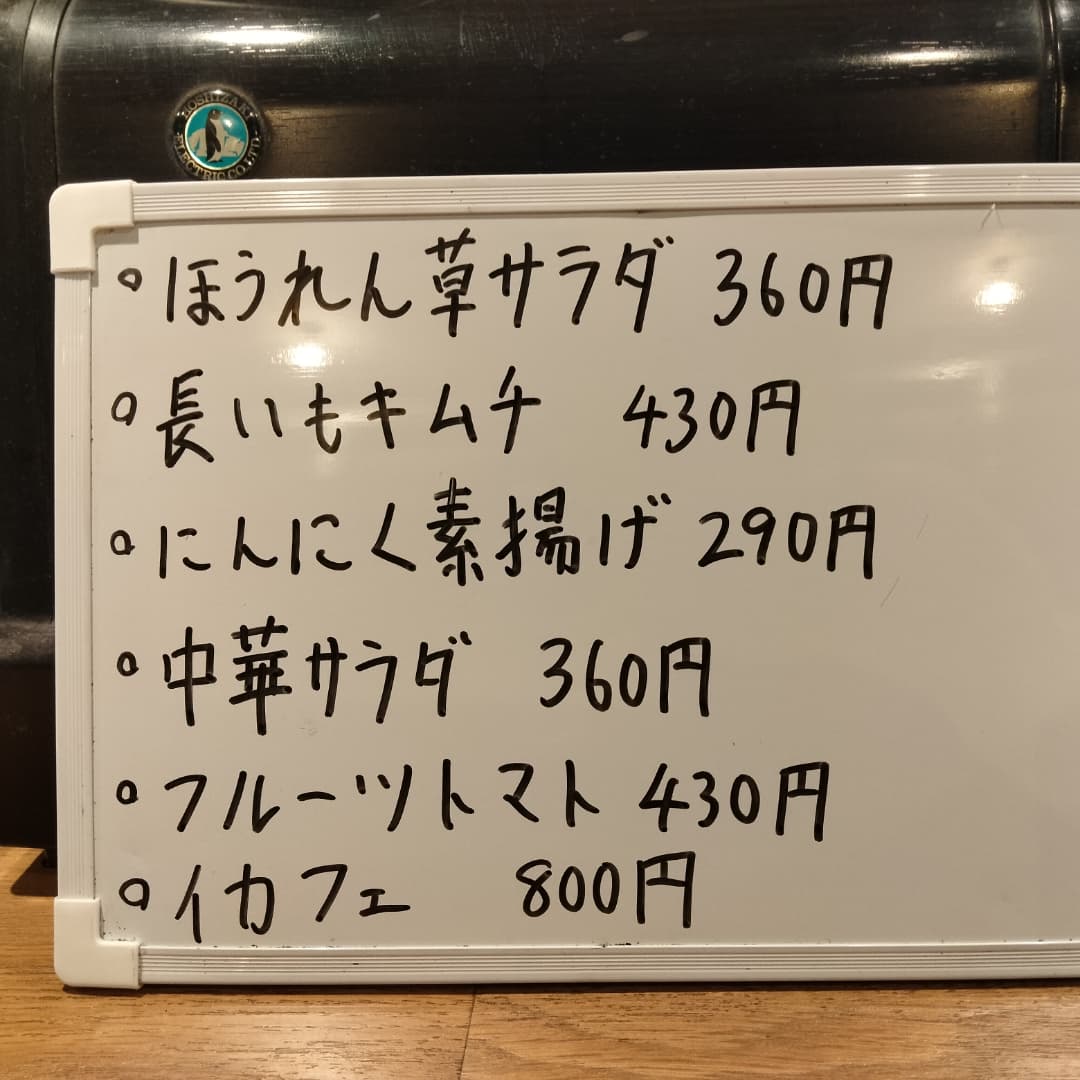 HOSHIZAKI ELECTRIC CO.LTD.
ほうれん草サラダ 360円
長いもキムチ 430円
にんにく素揚げ 290円
中華サラダ 360円
フルーツトマト 430円
イカフェ 800円